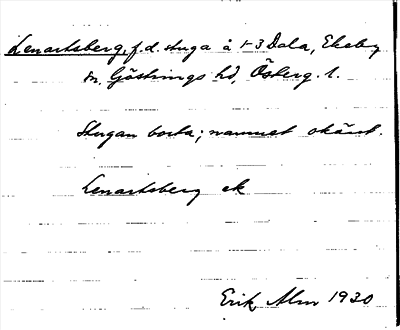 Lenartsberg, f.d. stuga å 1-3 Dala, Ekeby
sn, Göstrings hd, Österg. l.
Stugan borta; namnet okänt.
Lenartsberg ek
Erik Alm 1930